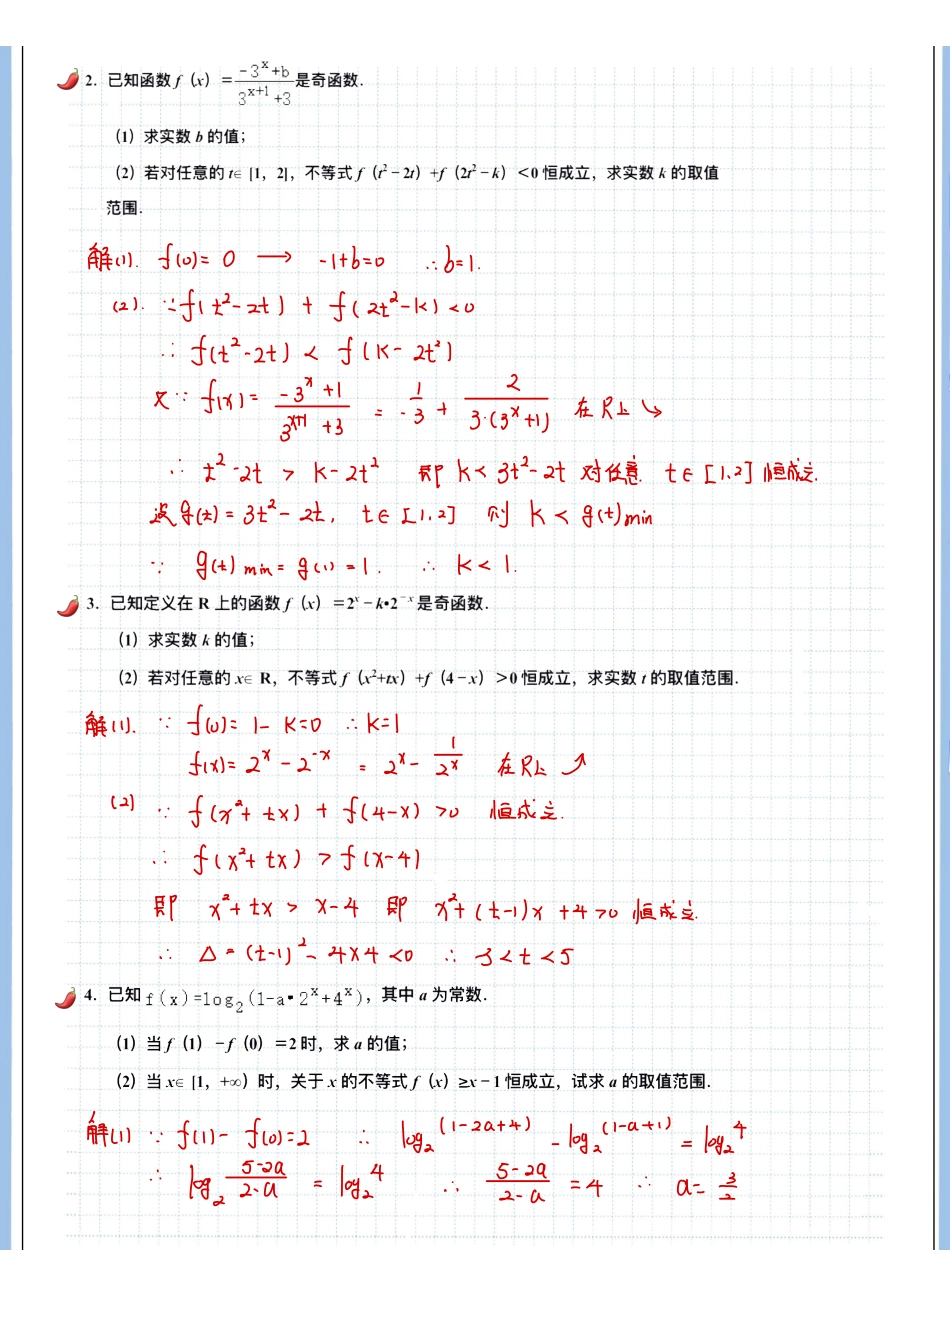 2. 已知函数 f（x）＝(-3^x+b)/(3^{x+1}+3) 是奇函数．
（1）求实数 b 的值；
（2）若对任意的 t∈ [1，2]，不等式 f（t²－2t）+f（2t²－k）＜0 恒成立，求实数 k 的取值
范围．
解(1). f(0)= 0 → -1+b=0 ∴b=1.
(2). ∵f(t²-2t) + f(2t²-k)<0
∴ f(t²-2t) < f(k-2t²)
又∵ f(x)= (-3^x+1)/(3^{x+1}+3) = -1/3 + 2/(3·(3^x+1)) 在R上↘
∴ t²-2t > k-2t² 即 k< 3t²-2t 对任意 t∈[1,2]恒成立.
设g(t)=3t²-2t, t∈[1,2] 则 k<g(t)min
∵ g(t)min=g(1)=1. ∴ k<1.
3. 已知定义在 R 上的函数 f（x）＝2^x－k•2^{－x} 是奇函数．
（1）求实数 k 的值；
（2）若对任意的 x∈ R，不等式 f（x²+tx）+f（4－x）＞0 恒成立，求实数 t 的取值范围．
解(1). ∵ f(0)= 1-k=0 ∴k=1
f(x)= 2^x-2^{-x} = 2^x - 1/2^x 在R上↗
(2) ∵ f(x²+tx) + f(4-x) >0 恒成立.
∴ f(x²+tx) > f(x-4)
即 x²+tx > x-4 即 x²+(t-1)x+4>0 恒成立.
∴ △=(t-1)²-4×4<0 ∴ -3<t<5
4. 已知 f(x)=log₂(1-a•2^x+4^x)，其中 a 为常数．
（1）当 f（1）－f（0）＝2 时，求 a 的值；
（2）当 x∈ [1，+∞）时，关于 x 的不等式 f（x）≥x－1 恒成立，试求 a 的取值范围．
解(1) ∵ f(1)- f(0)=2 ∴ log₂(1-2a+4) - log₂(1-a+1) = log₂4
∴ log₂ (5-2a)/(2-a) = log₂4 ∴ (5-2a)/(2-a) =4 ∴ a= 3/2